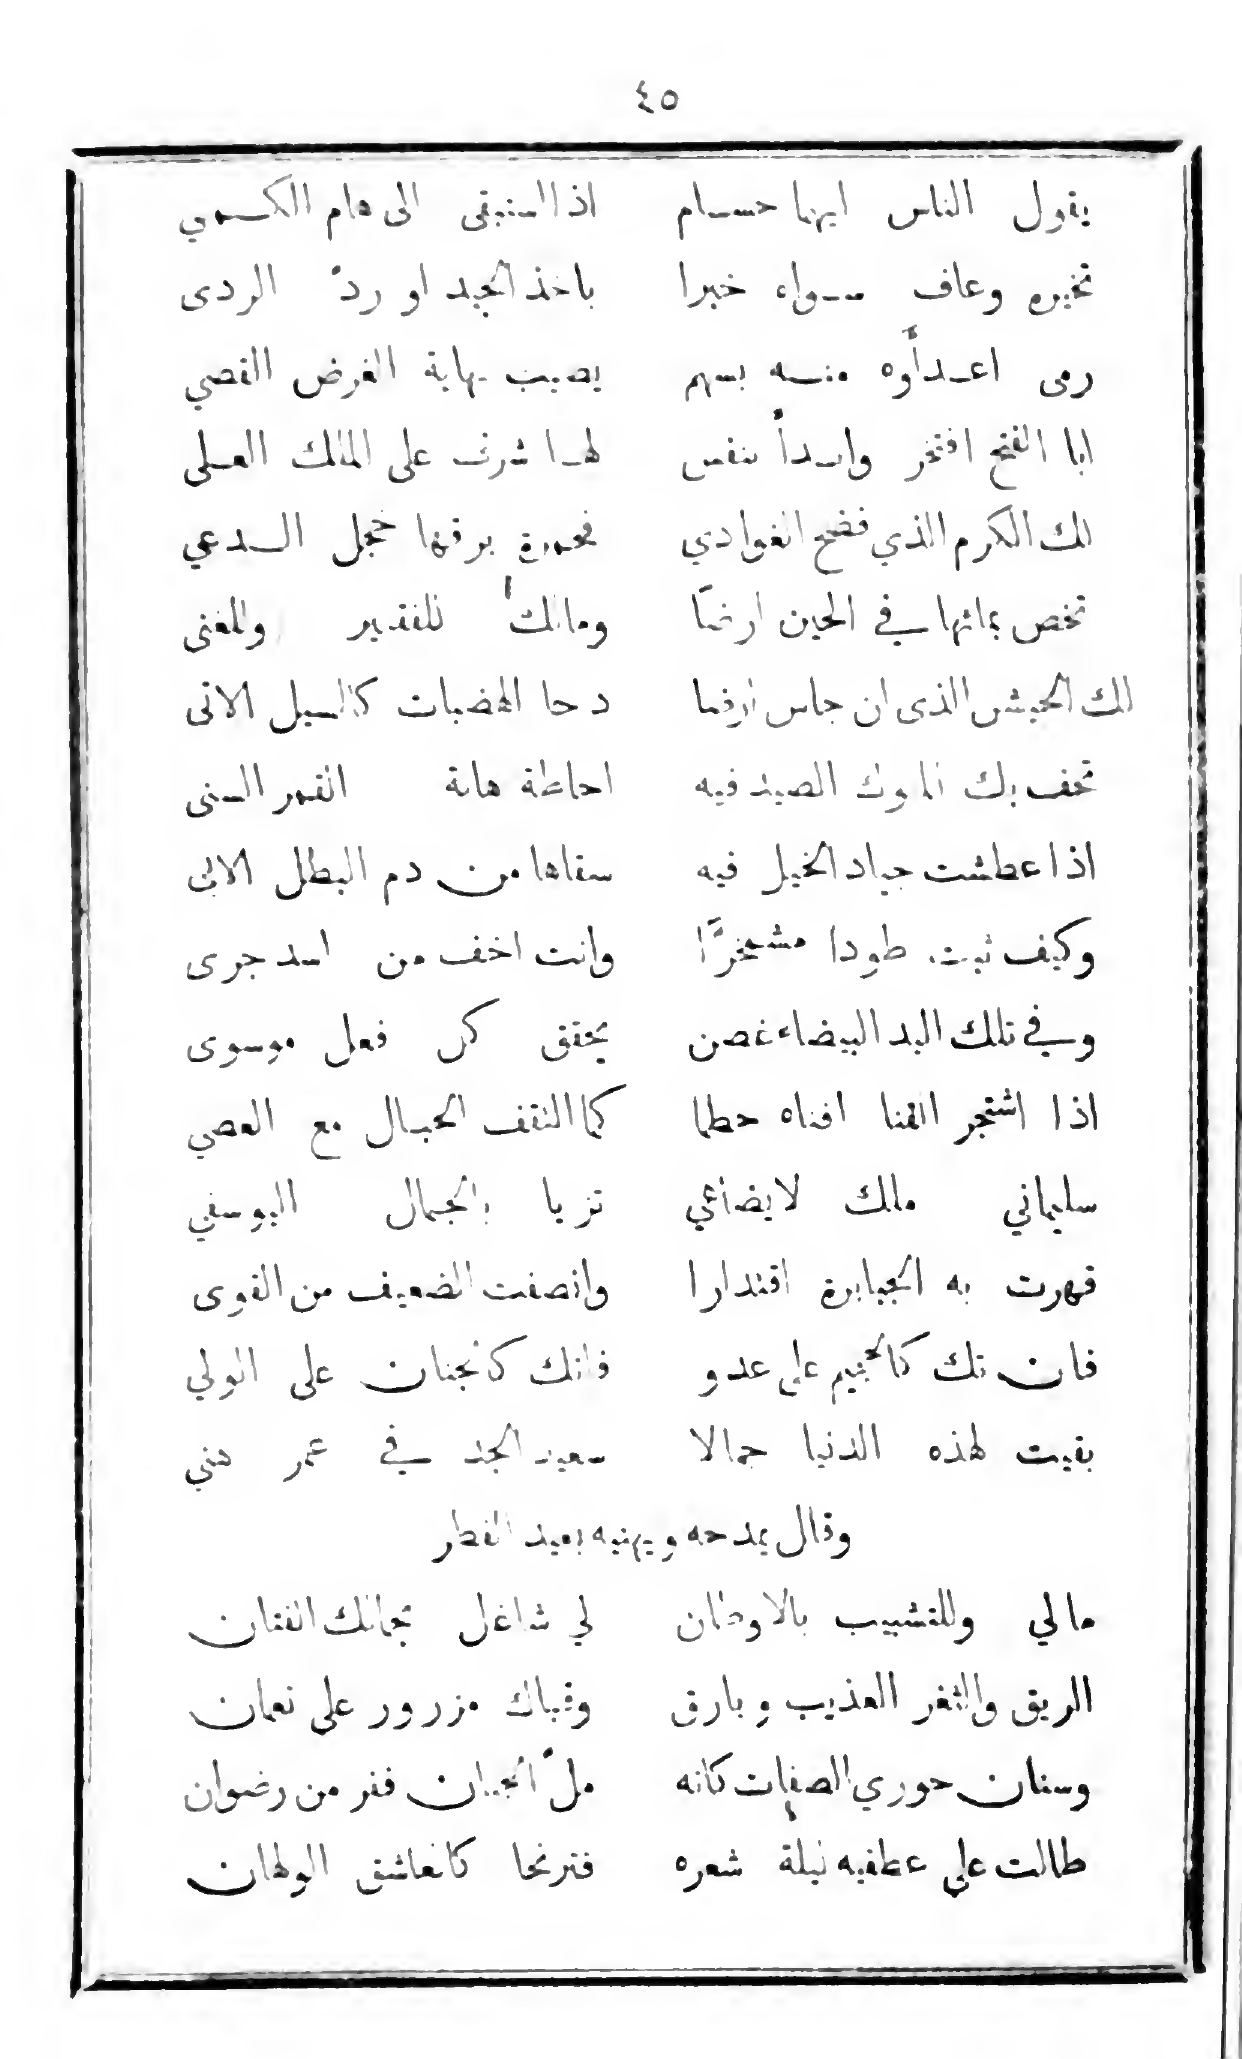 ٤٥
يقول الناس ايهما حسام اذ استبقى الى هام الكمي
تخيره وعاف سواه خبرا باخذ الجيد او ردّ الردى
رمى اعداؤه منه بسهم يصيب نهاية الغرض القصي
ابا الفتح افتخر واسدأ بنفس لها شرف على الملك العلى
لك الكرم الذي فضح الغوادي برقها خجل الدعي
تخص بمائها في الحين ارضًا ومالك للفقير وللغنى
لك الجيش الذى ان جاس ارضا دحا الهضبات كالسيل الاتى
تحف بك الملوك الصيد فيه احاطة هالة القمر السنى
اذا عطشت جياد الخيل فيه سقاها من دم البطل الابى
وكيف ثبت طودا مشمخرًّا وانت اخف من اسد جرى
وفي تلك اليد البيضاء غصن يحقق كل فعل موسوى
اذا اشتجر القنا افناه حطما كما التقف الحبال مع العصي
سليماني ملك لا يضاعي تزيا بالجمال اليوسفي
قهرت به الجبابرة اقتدارا وانصفت الضعيف من القوى
فان تك كالجحيم على عدو فانك كالجنان على الولي
بقيت لهذه الدنيا جمالا سعيد الجد في عمر هني
وقال يمدحه ويهنيه بعيد الفطر
مالي وللتشبيب بالاوطان لي شاغل بجمالك الفتان
الريق والثغر العذيب وبارق وقباك مزرور على نعمان
وسنان حوري الصفات كانه ملّ الجنان ففر من رضوان
طالت على عطفيه ليلة شعره فترنحا كالعاشق الولهان